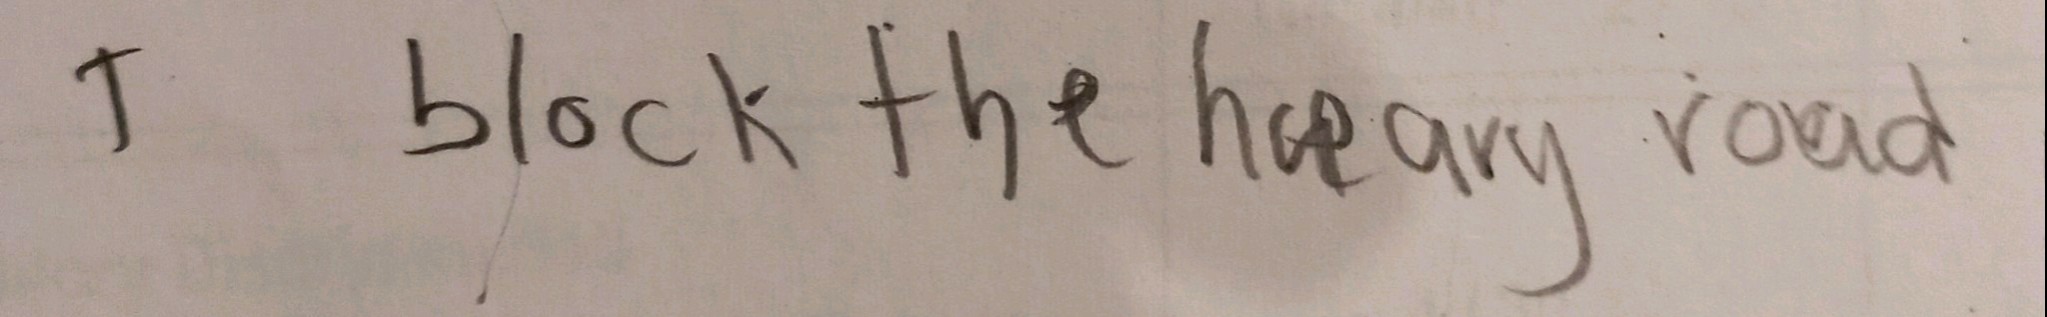 I block the heavy road